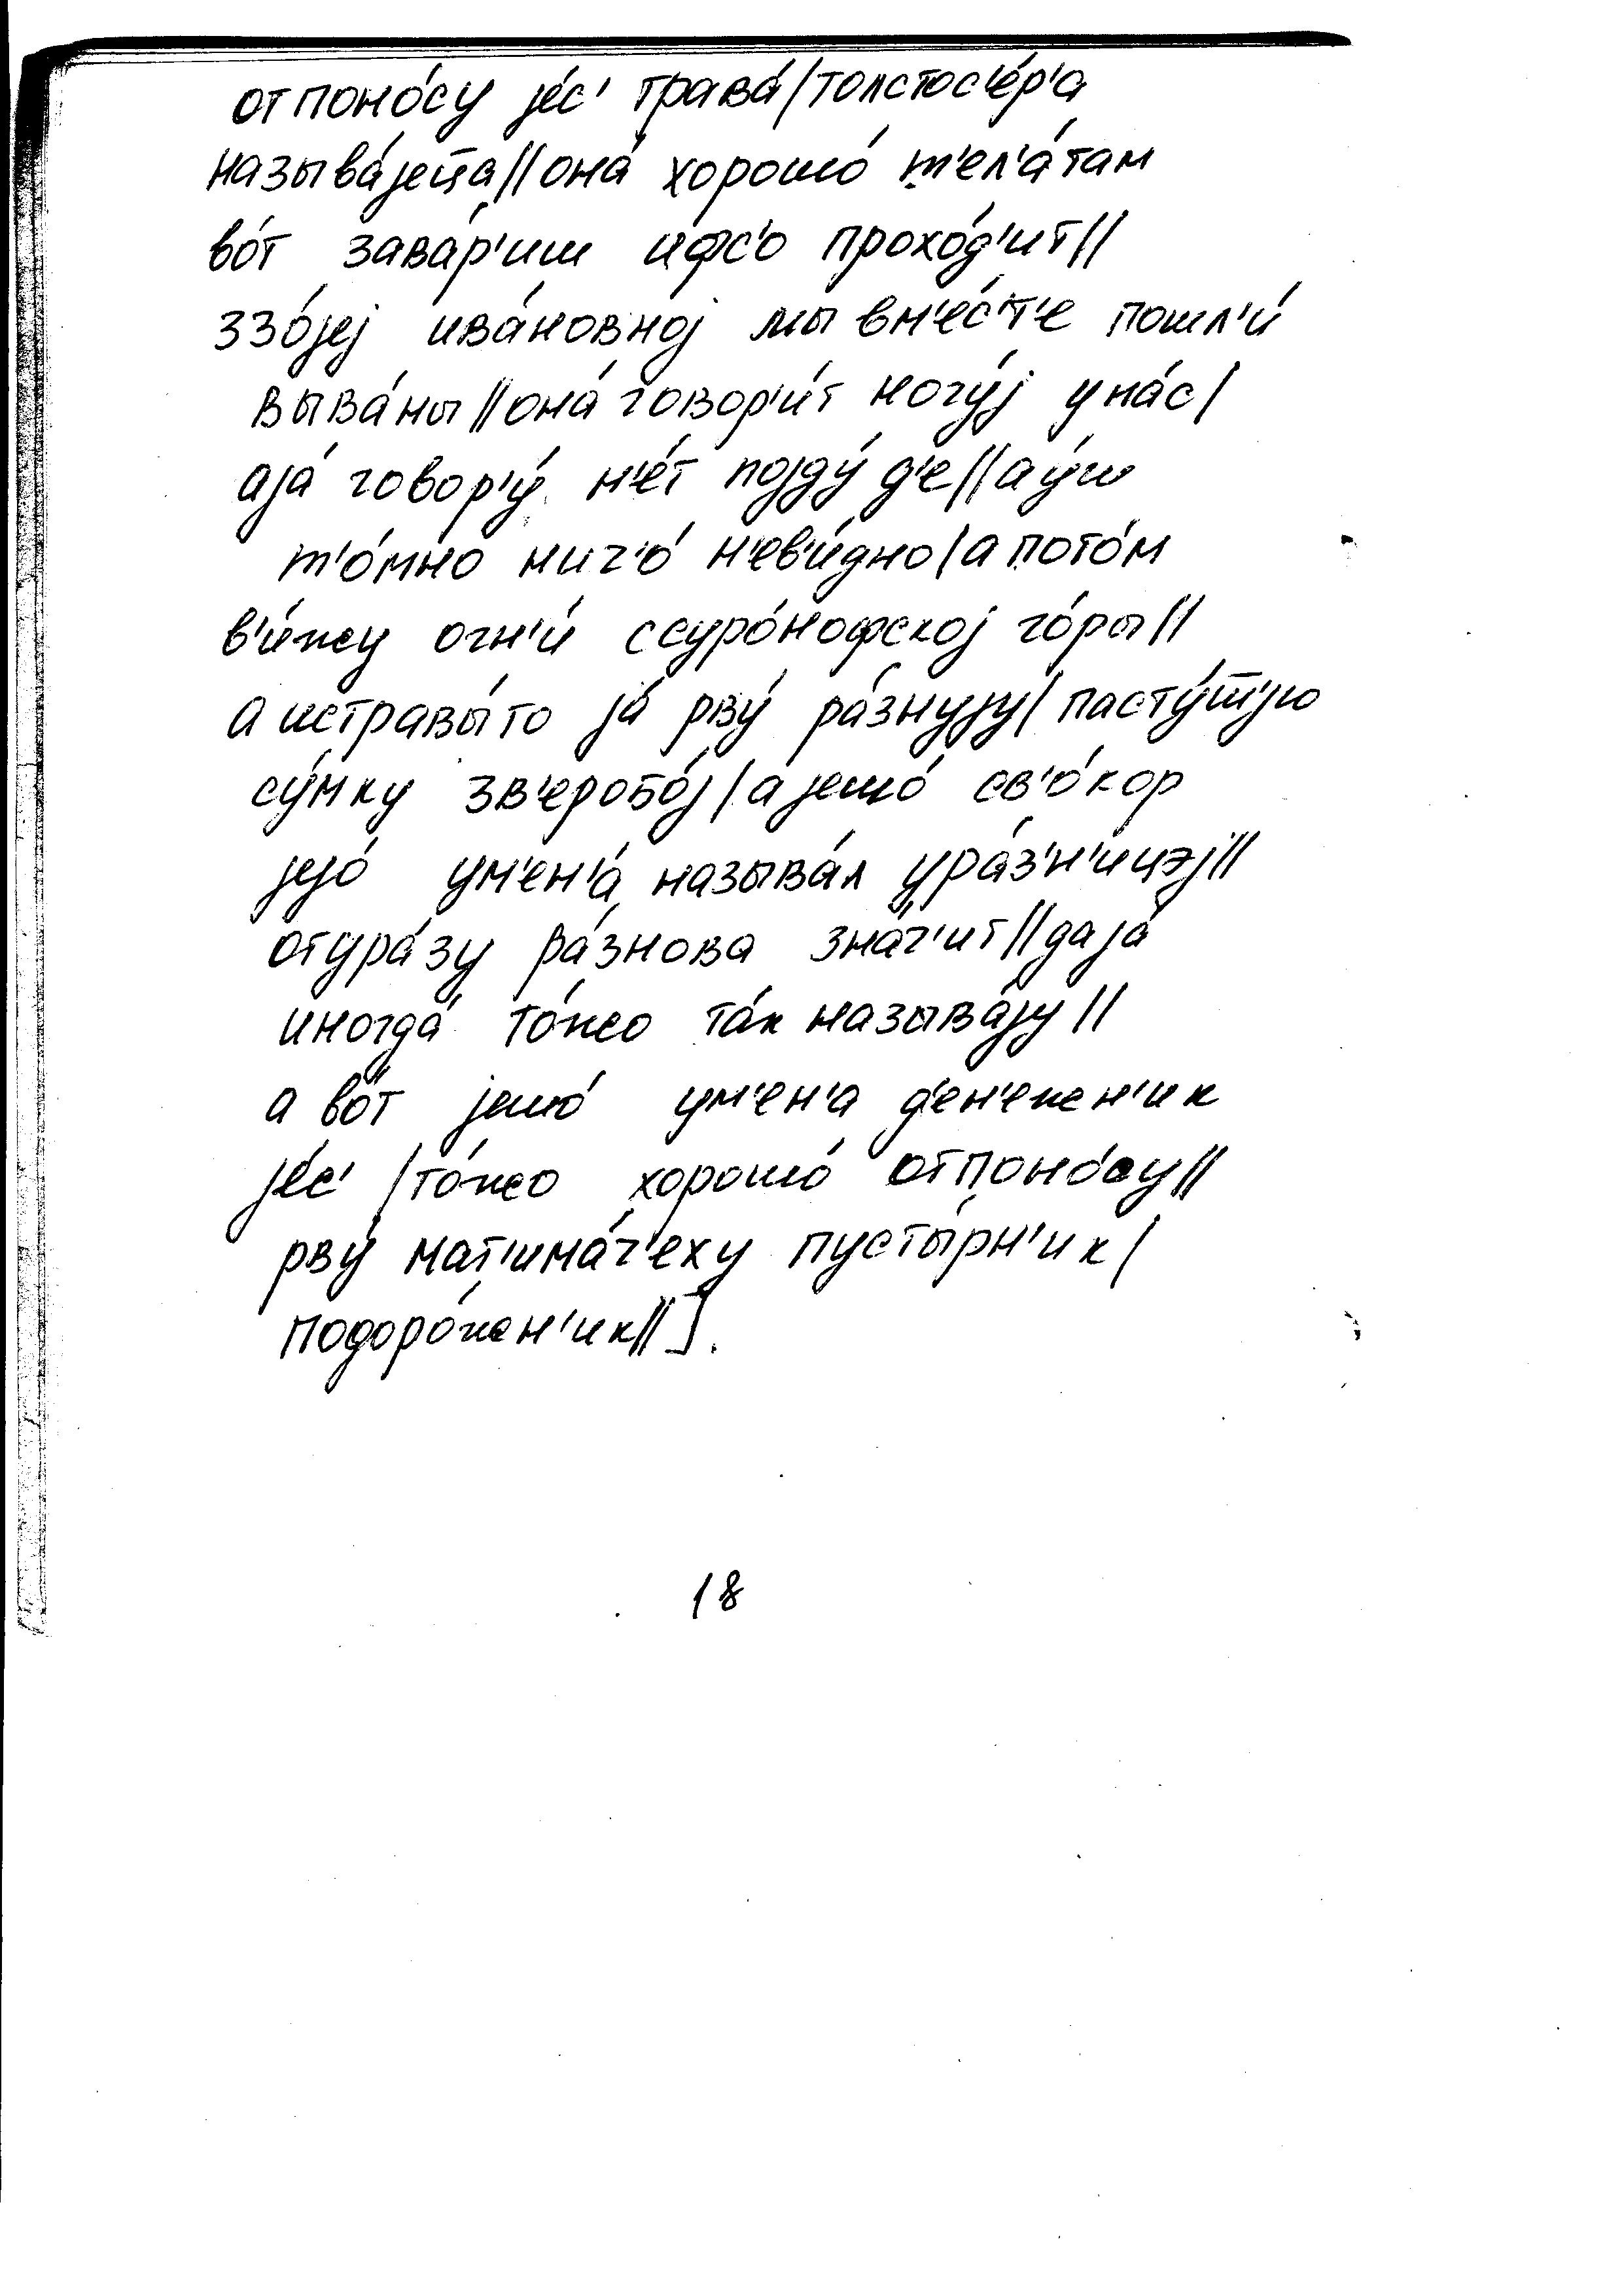 отпоно́су је́с' трава́/толстос'е́р'а
называ́јеца//она́ хорошо́ т'ел'а́там
во́т зава́р'иш ифс'о́ прохо́д'ит//
ззо́јеј ива́новној мы вм'е́с'т'е пошл'и́
выва́ны//она́ говор'и́т ночу́ј уна́с/
аја́ говор'у́ н'е́т појду́ д'е//ау́ш
т'о́мно нич'о́ н'ев'и́дно/а пото́м
в'и́жу огн'и́ ссуро́нофској го́ры//
а истравы́то ја́ рву́ ра́знују/пасту́шју
су́мку зв'еробо́ј/а јешо́ св'о́кор
јејо́ ум'ен'а́ называ́л ура́з'н'ицэј//
отура́зу ра́знова зна́ч'ит//даја́
иногда́ то́жо та́к называ́ју//
а во́т јешо́ ум'ен'а д'ен'ежн'ик
је́с' /то́жо хорошо́ отпоно́су//
рву́ мат'има́ч'еху пусты́рн'ик/
подоро́жн'ик//].
18